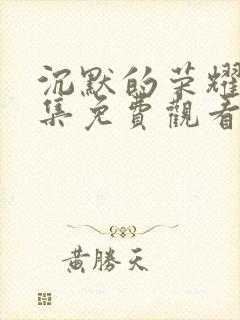 沉默的荣耀
集免費觀看
黃勝天